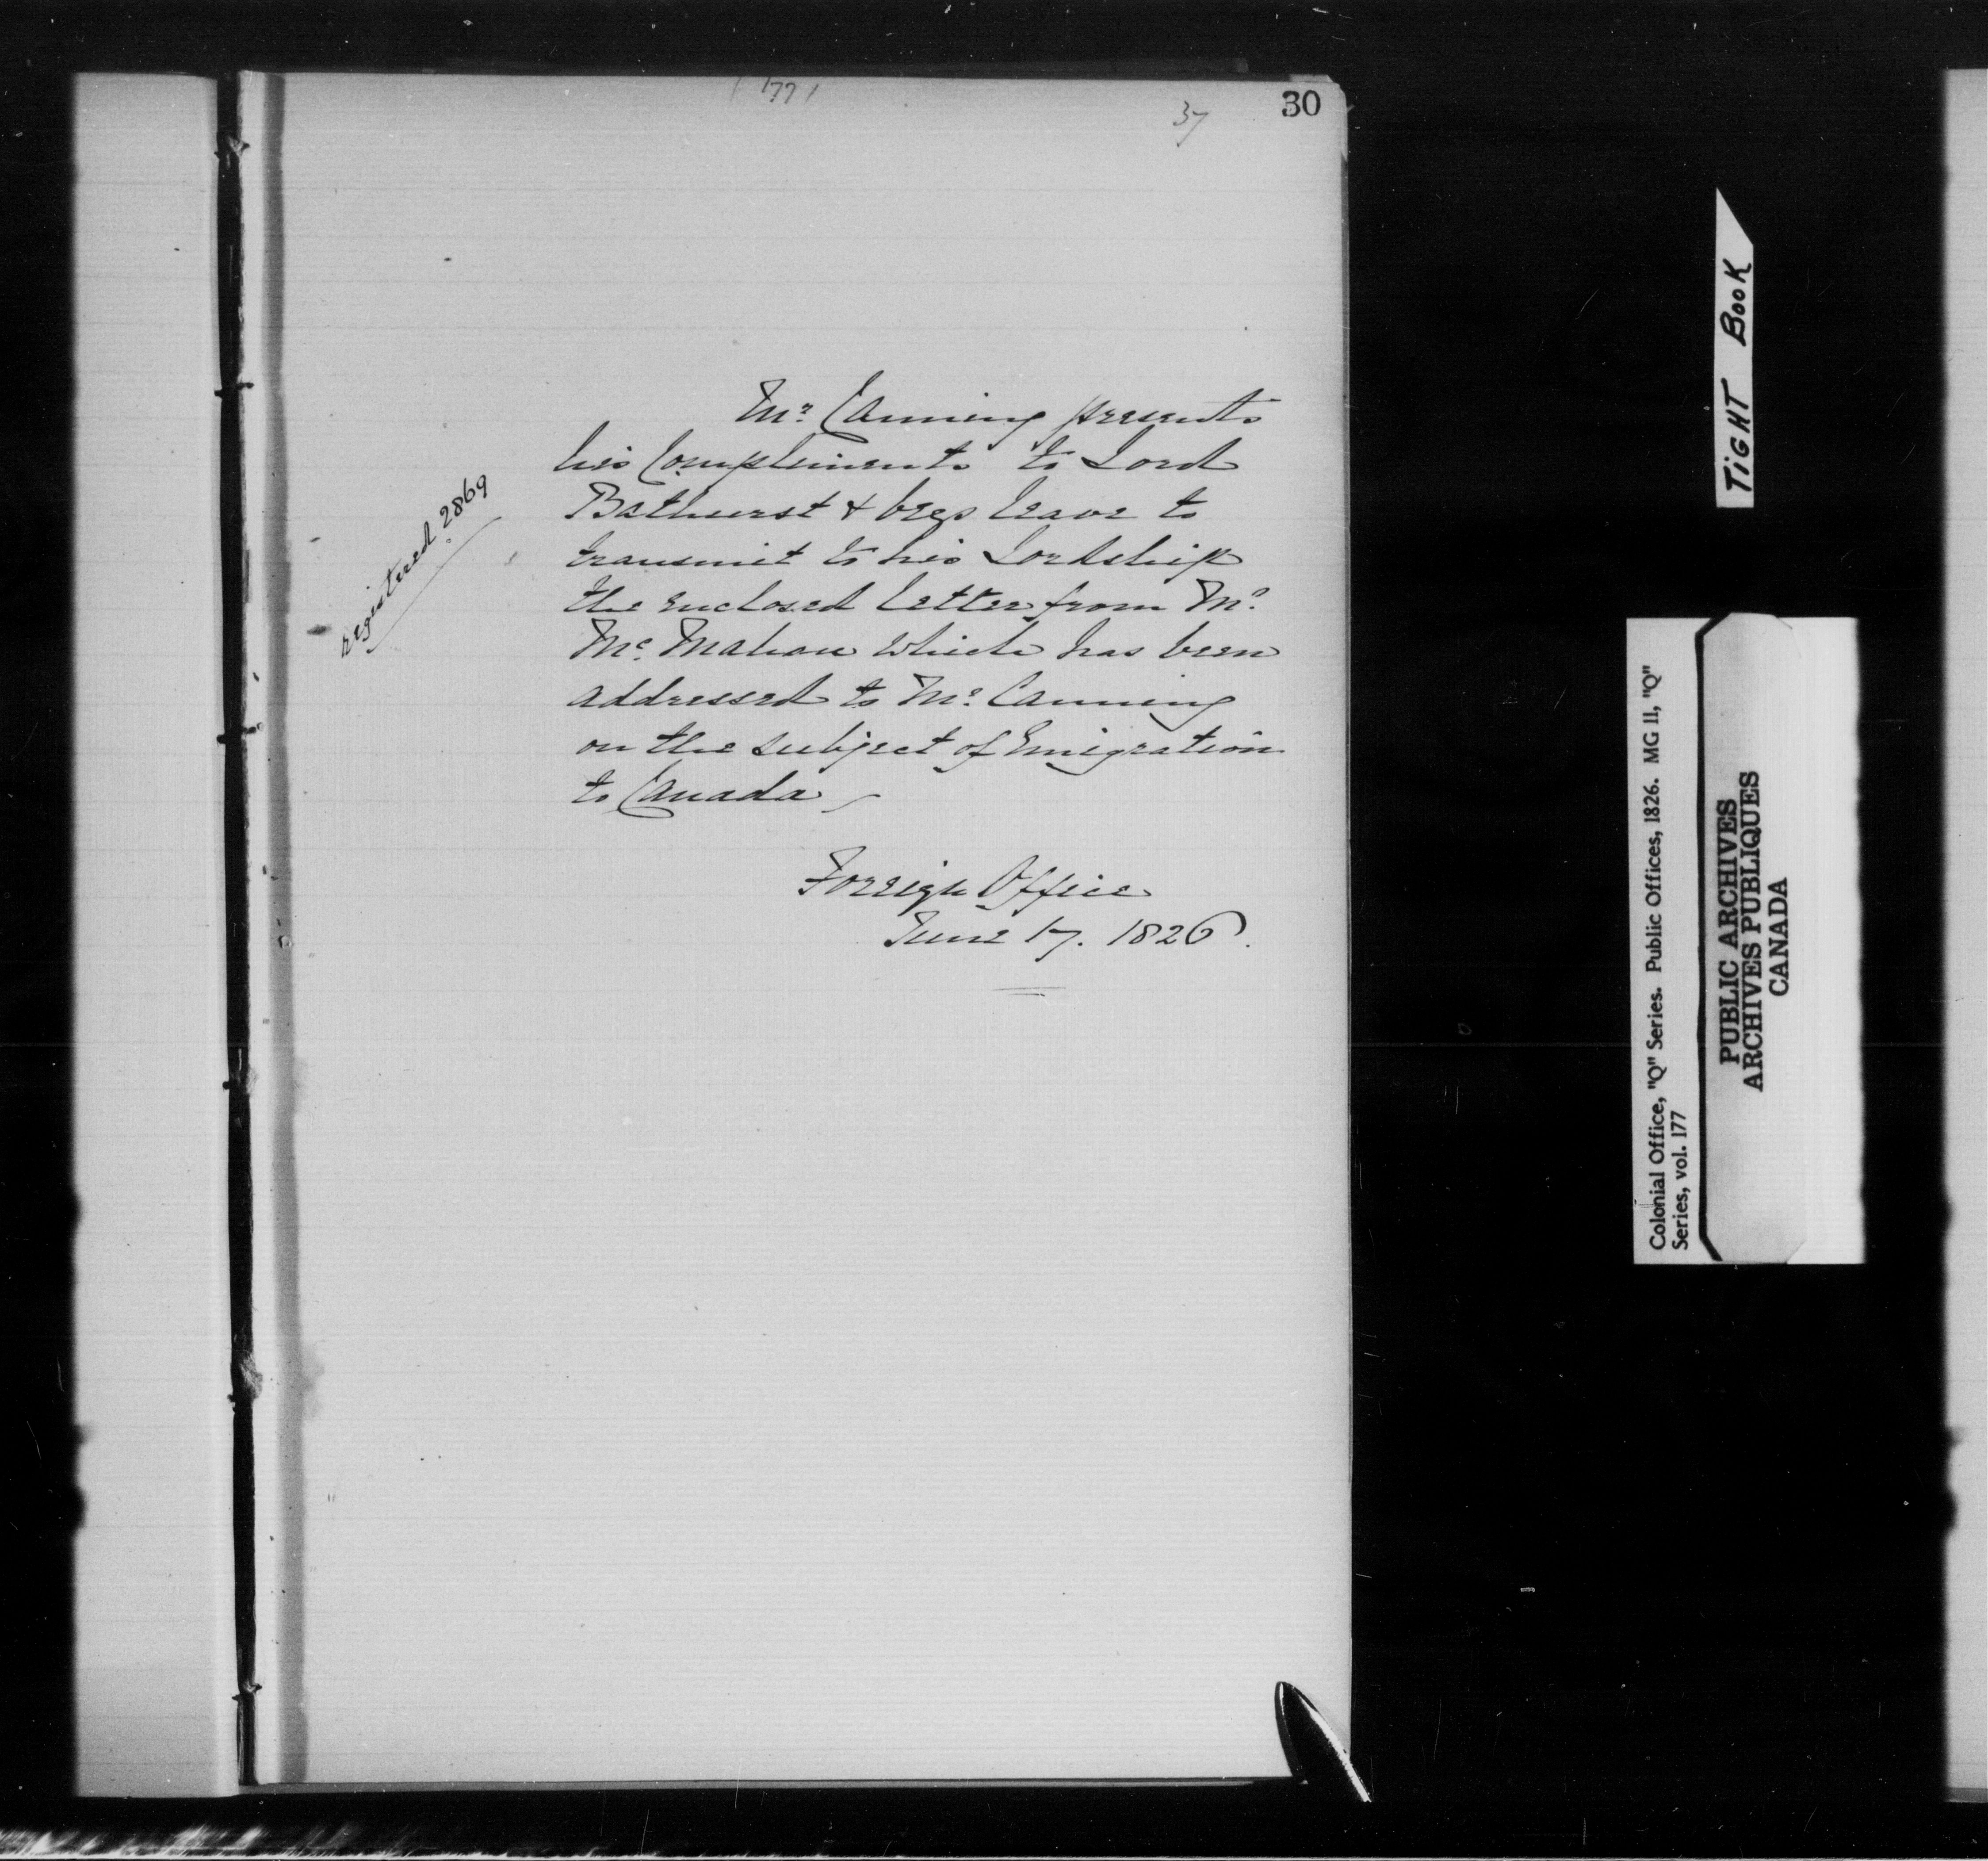 (177)
37
30
Mr. Canning presents
his Compliments to Lord
Bathurst & begs leave to
transmit to his Lordship
the enclosed letter from Mr.
Mc. Mahon which has been
addressed to Mr. Canning
on the subject of Emigration
to Canada
Foreign Office
June 17. 1826.
registered 2869
TIGHT BOOK
Colonial Office, "Q" Series. Public Offices, 1826. MG 11, "Q"
Series, vol. 177
PUBLIC ARCHIVES
ARCHIVES PUBLIQUES
CANADA